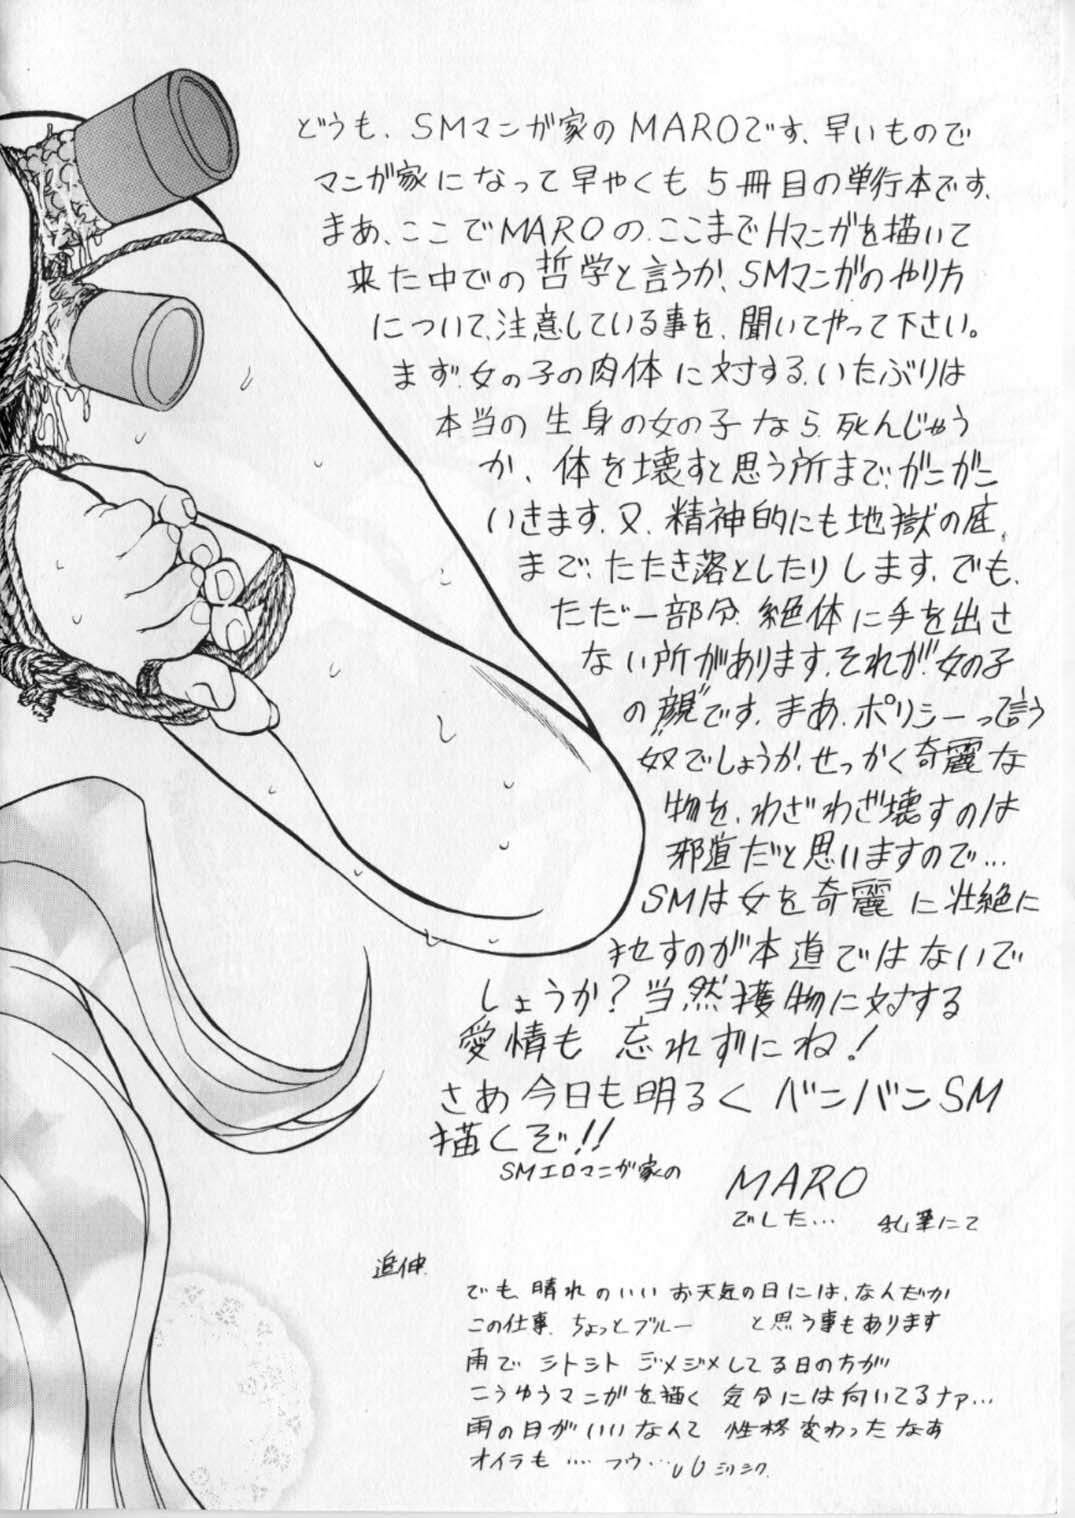 どうも、SMマンガ家のMAROです、早いもので
マンガ家になって早やくも5冊目の単行本です、
まあ、ここでMAROの、ここまでHマンガを描いて
来た中での哲学と言うか、SMマンガのやり方
について、注意している事を、聞いてやって下さい。
まず、女の子の肉体に対する、いたぶりは
本当の生身の女の子なら、死んじゃう
か、体を壊すと思う所まで、ガンガン
いきます、又、精神的にも地獄の底、
まで、たたき落としたりします、でも、
ただ一部分、絶体に手を出さ
ない所があります、それが、女の子
の"顔"です、まあ、ポリシーって言う
奴でしょうか、せっかく奇麗な
物を、わざわざ壊すのは
邪道だと思いますので…
SMは女を奇麗に壮絶に
すのが本道ではないで
しょうか?当然獲物に対する
愛情も忘れずにね!
さあ今日も明るくバンバンSM
描くぞ!!
SMエロマンガ家の
MARO
でした… 乱筆にて
追伸
でも、晴れのいいお天気の日には、なんだか
この仕事、ちょっとブルー と思う事もあります
雨でシトシトジメジメしてる日の方が
こうゆうマンガを描く気分には向いてるナァ…
雨の日がいいなんて性格変わったなあ
オイラも…フウ…